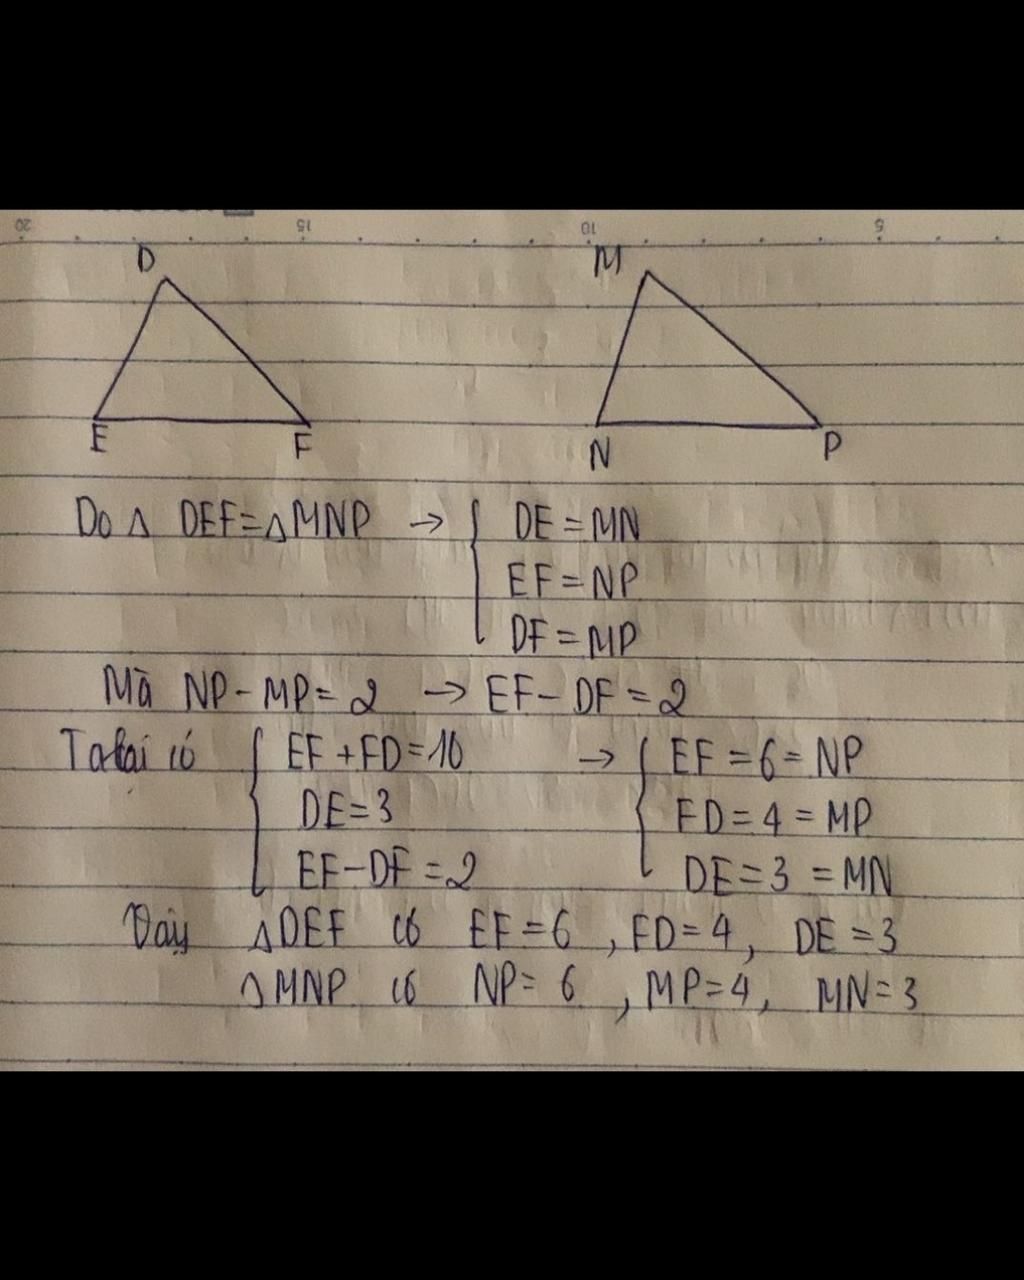 20 15 10 5
D M
E F N P
Do Δ DEF = Δ MNP → { DE = MN
EF = NP
DF = MP
Mà NP - MP = 2 → EF - DF = 2
Ta lại có { EF + FD = 10 → { EF = 6 = NP
DE = 3 FD = 4 = MP
EF - DF = 2 DE = 3 = MN
Vậy Δ DEF có EF = 6 , FD = 4 , DE = 3
Δ MNP có NP = 6 , MP = 4 , MN = 3